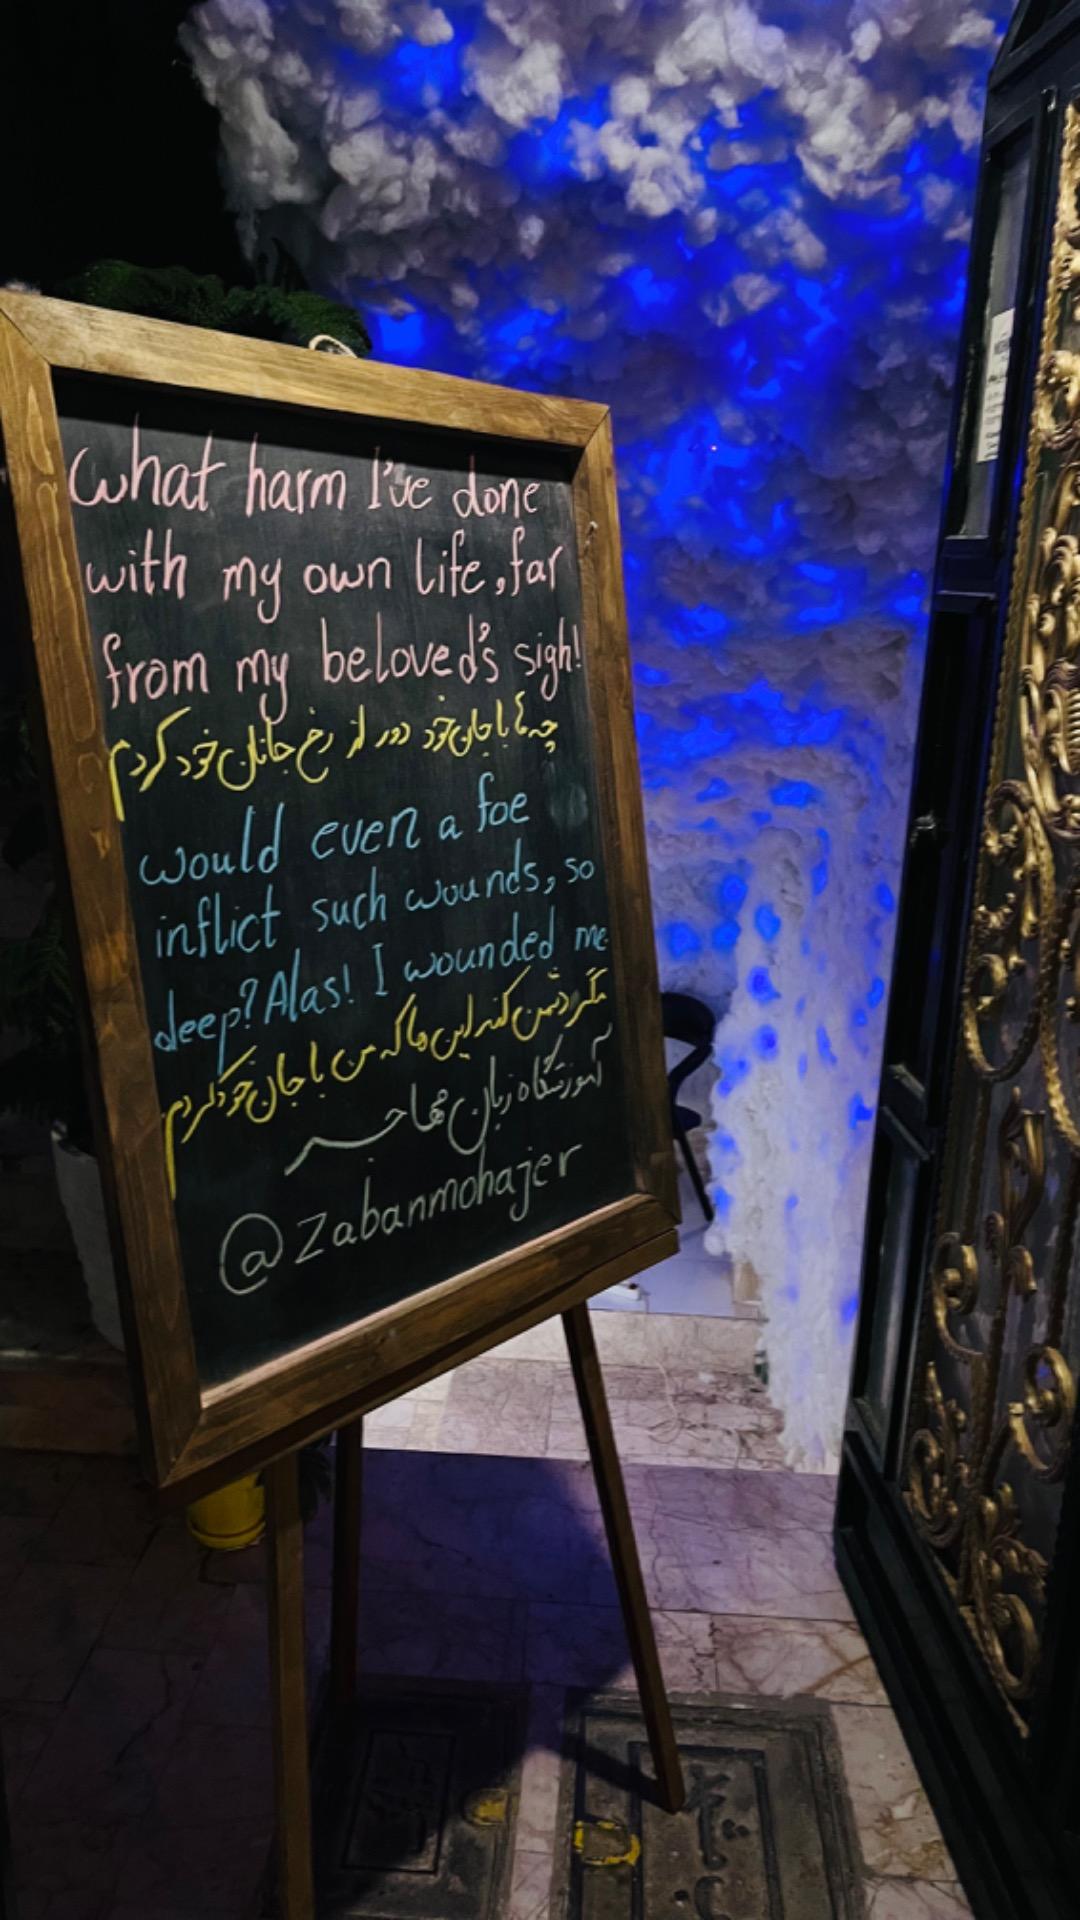 What harm I've done
with my own life, far
from my beloved's sigh!
چه‌ها با جان خود دور از رخ جانان خود کردم
would even a foe
inflict such wounds, so
deep? Alas! I wounded me
مگر دشمن کند این‌ها که من با جان خود کردم
آموزشگاه زبان مهاجر
@zabanmohajer